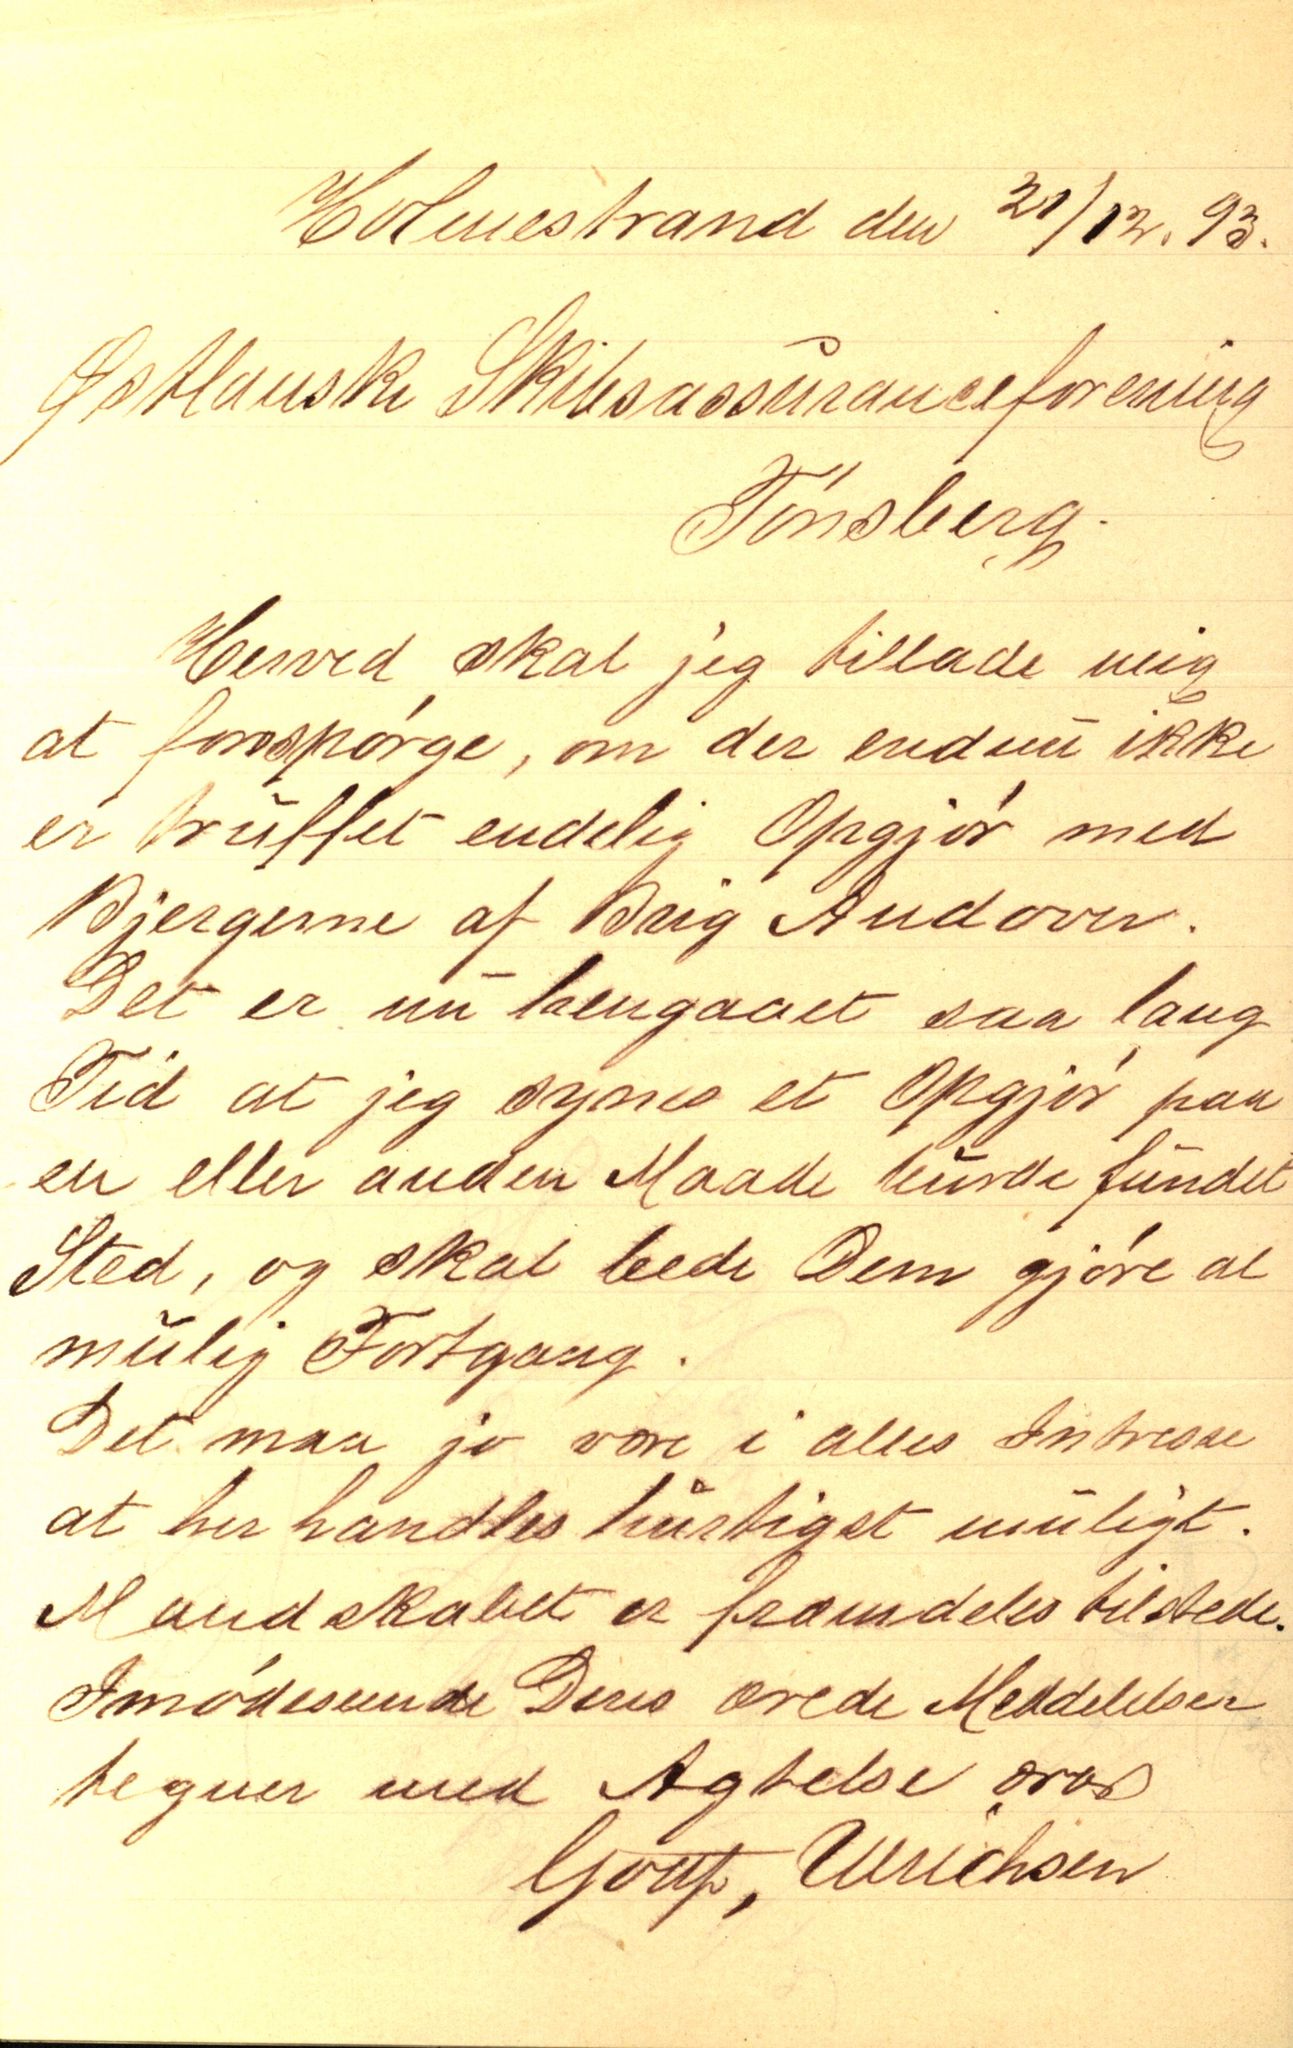 Holmestrand den 21/12. 93.
Østlanske Skibsassuranceforening
Tönsberg.
Herved skal jeg tillade mig
at forespörge, om der endnu ikke
er truffet endelig Opgjör med
Bjergerne af Brig Andover.
Det er nu hengaaet saa lang
Tid at jeg synes et Opgjör paa
en eller anden Maade burde fundet
Sted, og skal bede Dem gjöre al
mulig Fortgang.
Det maa jo være i alles Intresse
at her handles hurtigst muligt.
Mandskabet er fremdeles tilstede.
Imödeseende Deres ærede Meddelelser
tegner med Agtelse ærb
Ulrichsen